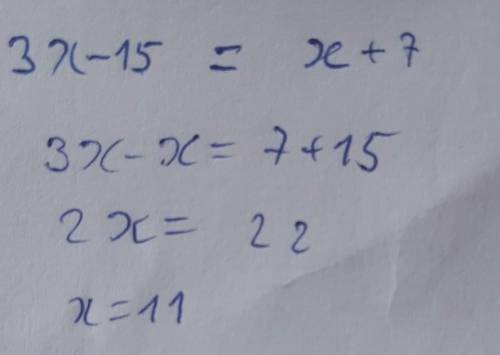 3x-15 = x+7
3x-x= 7+15
2x= 22
x=11